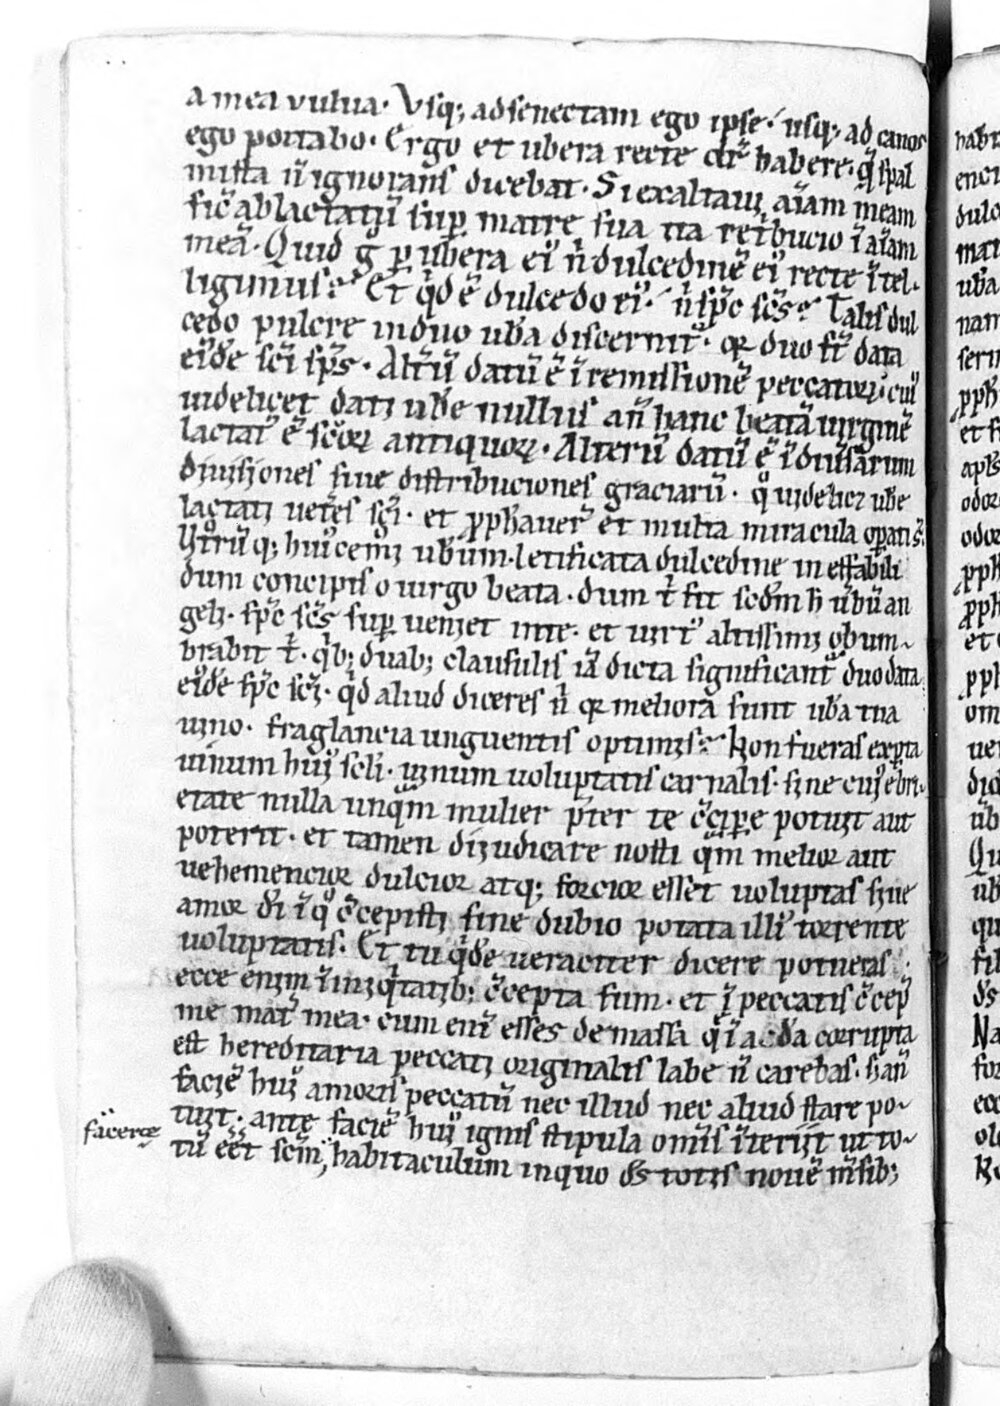 a mea vulua. Vsq; ad senectam ego ipse. usq; ad canos
ego portabo. Ergo et ubera recte dr̄ habere. q̄ spal
mista n̄ ignorans dicebat. Si exaltaui aīam meam
sic̄ ablactatū sup matre sua ita ret̄bucio ī aīam
meā. Quid g̊ p ubera ei' n̄ dulcedinē ei' recte ītel-
ligimus? Et q̇d ē dulcedo ei'. n̄ sp̄c sc̄s? Talis dul
cedo pulcre in duo ub̄a discernit̄. qr duo st̄ data
ei'dē sc̄i sp̄s. Altȳ datū ē ī remissionē peccatorꝝ. cui'
uidelicet dati ub̄e nullius an̄ hanc beatā uirginē
lactat' ē sc̄orꝝ antiquorꝝ. Alterū datū ē ī diu̇sarum
diuisiones siue distribuciones graciarū. q̊ uidelicz ub̄e
lactati uet̄es sc̄i. et ꝓph̄auer̄ et multa miracula opati s̄.
Vtrūq; hui'cemodi ub̄um. letificata dulcedine ineffabili
dum concipis o uirgo beata. dum t̄ fit scd̄m h̄ u̇bū an
geli. sp̄c sc̄s sup ueniet in te. et uirt' altissimi obum-
brabit t̄. q̇b; duab; clausulis iā dicta significant̄ duo data
ei'dē sp̄c sc̄i. q̇d aliud diceres n̄ qr meliora sunt ub̄a tua
uino. fraglancia unguentis optimis? Non fueras exꝑta
uinum hui' scl̄i. uinum uoluptatis carnalis. sine cui' ebri-
etate nulla unq̄m mulier p̄ter te c̄cipe potuit aut
poterit. et tamen diiudicare nosti q̄m melior aut
uehemencior dulcior atq; forcior esset uoluptas sine
amor di ī q̊ c̄cepisti sine dubio potata illi' torrente
uoluptatis. Et tu q̇dē ueraciter dicere potueras.
ecce enim ī iniq̇tatib; c̄cepta sum. et ī peccatis c̄cep̄
me mat̄ mea. cum eni esses de massa q̄ ī adā corrupta
est hereditaria peccati originalis labe n̄ carebas. s; an̄
faciē hui' amoris peccatū nec illud nec aliud stare po-
tuit. ante faciē hui' ignis stipula om̄is īteriit ut to-
facere
tū eēt scm̄, habitaculum in quo ds̄ totis nouē m̄sib;